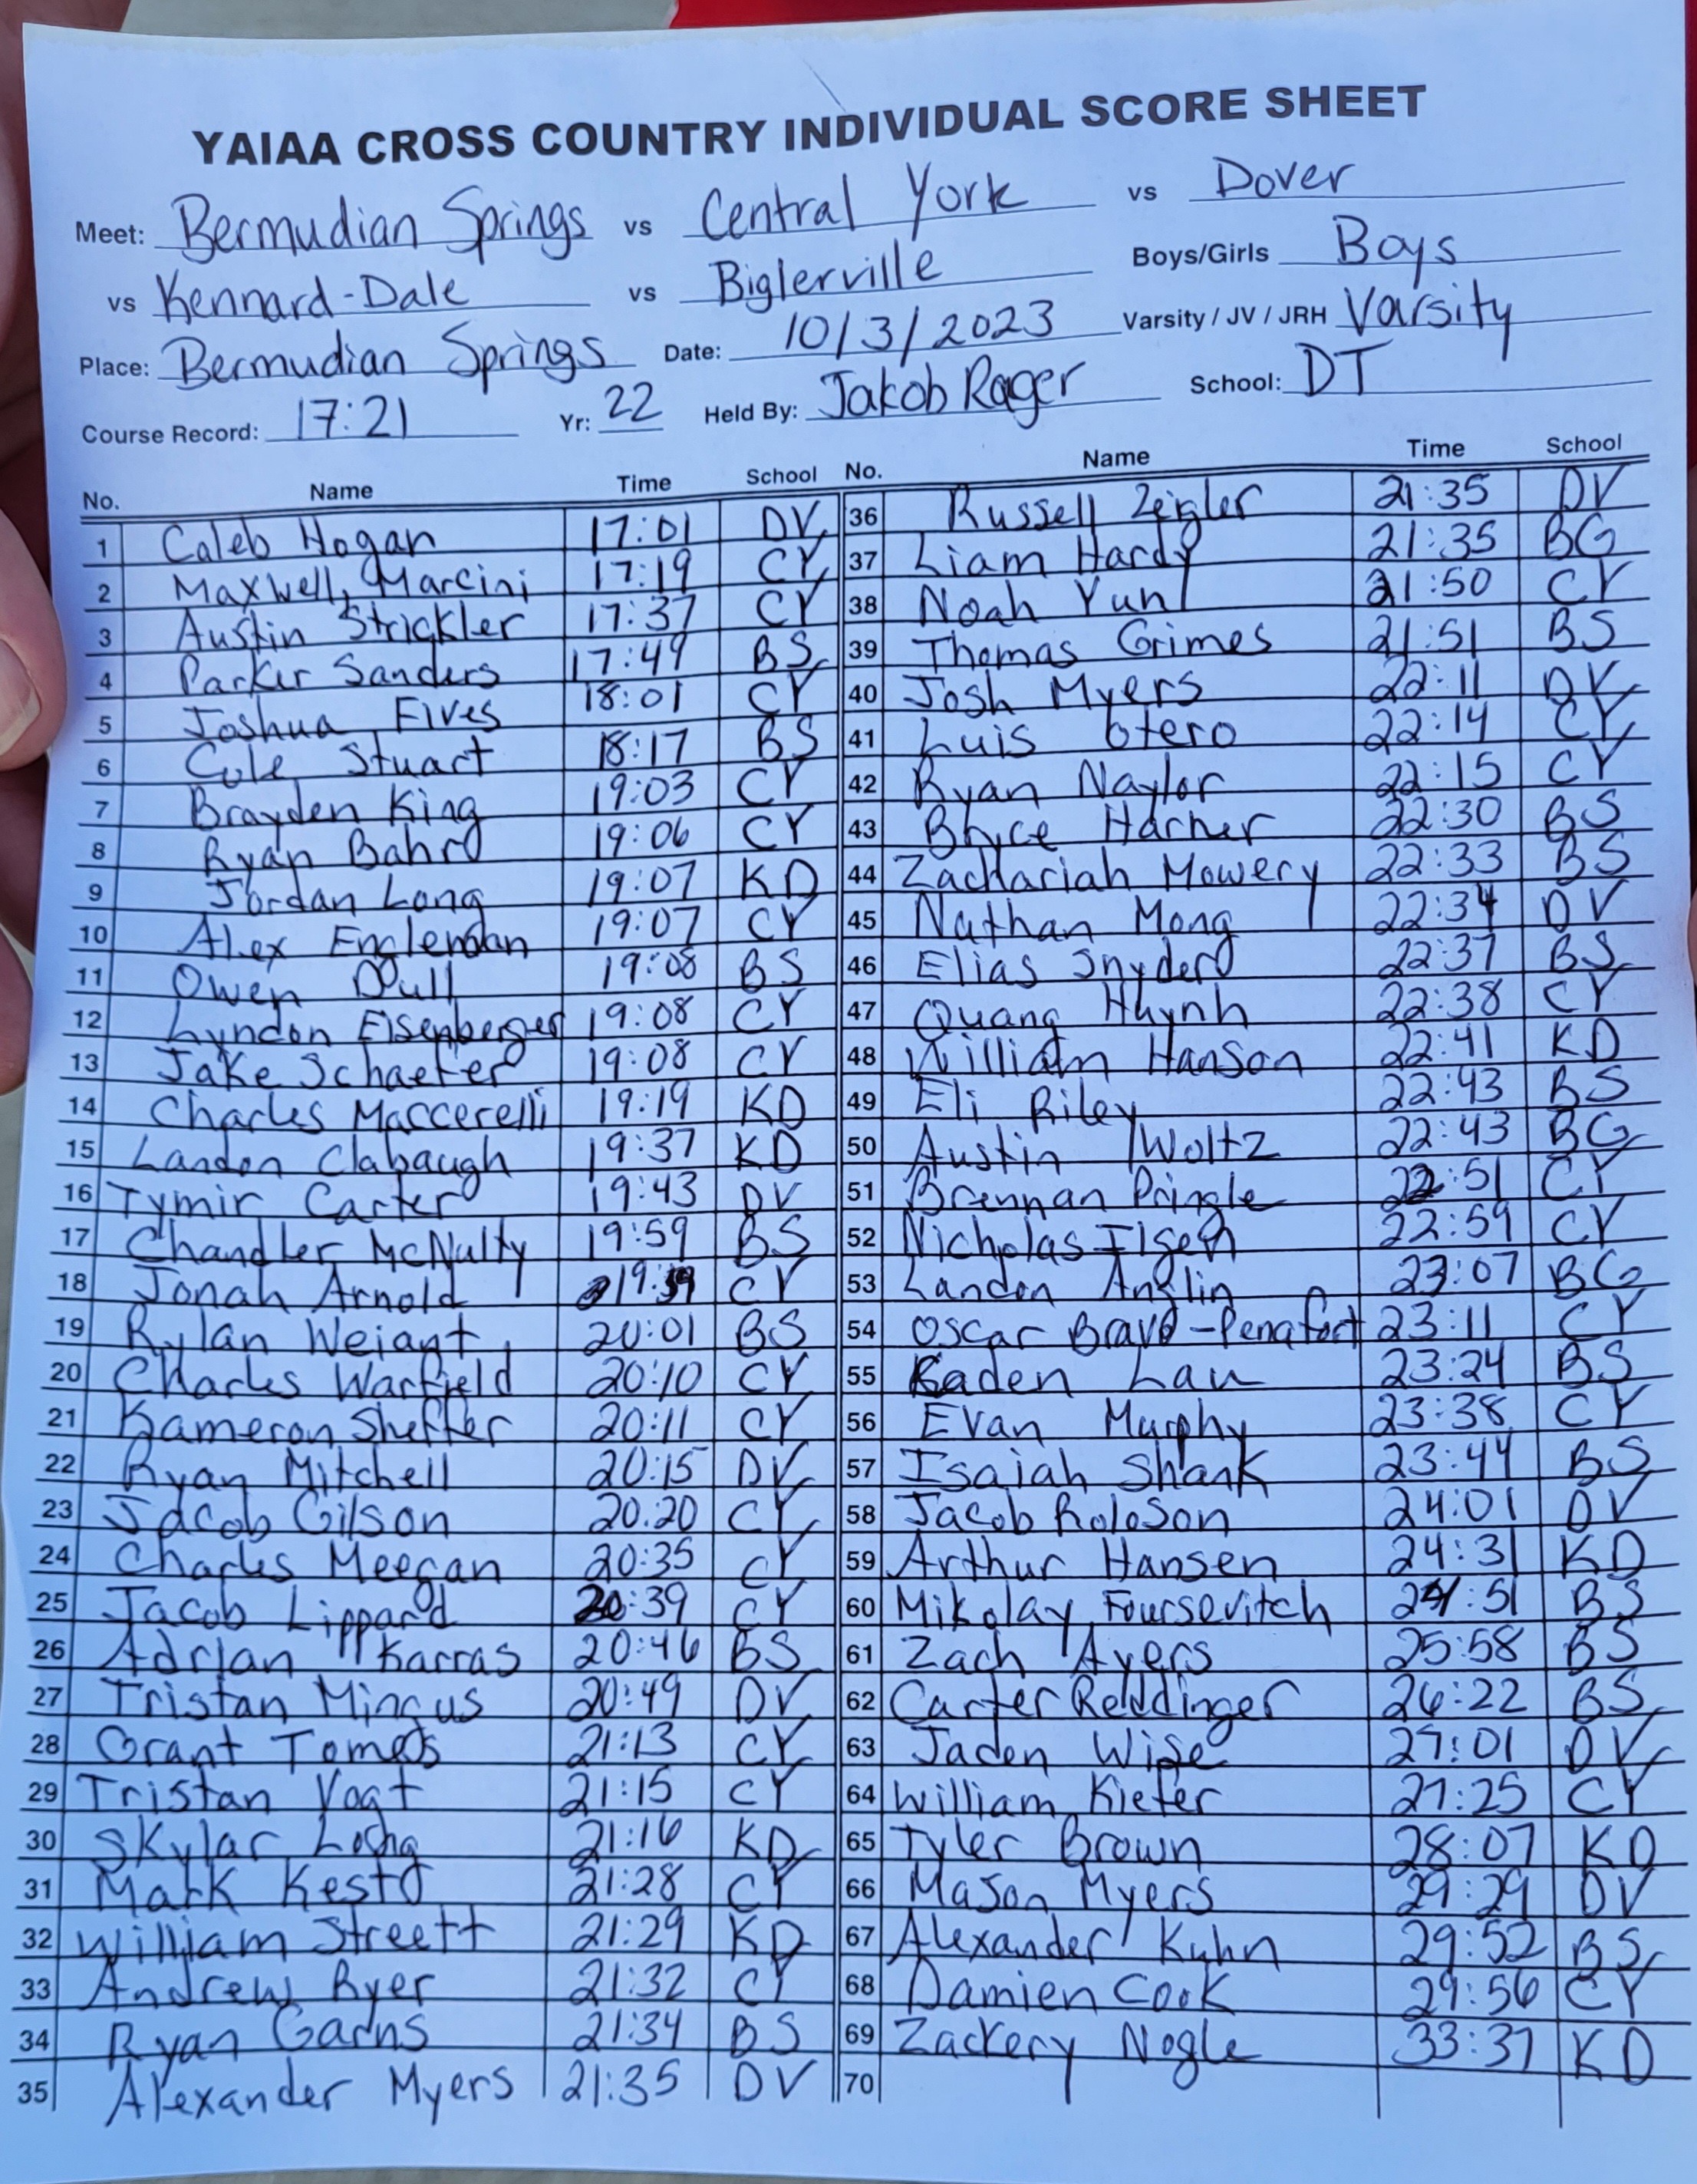 YAIAA CROSS COUNTRY INDIVIDUAL SCORE SHEET
Meet: Bermudian Springs vs Central York vs Dover
vs Kennard-Dale vs Biglerville Boys/Girls Boys
Place: Bermudian Springs Date: 10/3/2023 Varsity / JV / JRH Varsity
Course Record: 17:21 Yr: 22 Held By: Jakob Rager School: DT
No. Name Time School No. Name Time School
1 Caleb Hogan 17:01 DV
2 Maxwell Marcini 17:19 CY
3 Austin Strickler 17:37 CY
4 Parker Sanders 17:49 BS
5 Joshua Fives 18:01 CY
6 Cole Stuart 18:17 BS
7 Brayden King 19:03 CY
8 Ryan Bahr 19:06 CY
9 Jordan Long 19:07 KD
10 Alex 19:07 CY
11 Owen Dull 19:08 BS
12 Lyndon Eisenberger 19:08 CY
13 Jake Schaefer 19:08 CY
14 Charles Maccerelli 19:19 KD
15 Landon Clabaugh 19:37 KD
16 Tymir Carter 19:43 DV
17 Chandler McNulty 19:59 BS
18 Jonah Arnold CY
19 Rylan Weiant 20:01 BS
20 Charles Warfield 20:10 CY
21 Kameron Sheffer 20:11 CY
22 Ryan Mitchell 20:15 DV
23 Jacob Gilson 20:20 CY
24 Charles Meegan 20:35 CY
25 Jacob Lippard 20:39 CY
26 Adrian Karras 20:46 BS
27 Tristan Mingus 20:49 DV
28 Grant Tomes 21:13 CY
29 Tristan Vogt 21:15 CY
30 Skylar Long 21:16 KD
31 Mark Kest 21:28 CY
32 William Streett 21:29 KD
33 Andrew Ryer 21:32 CY
34 Ryan Garns 21:34 BS
35 Alexander Myers 21:35 DV
36 Russell Zeigler 21:35 DV
37 Liam Hardy 21:35 BG
38 Noah Yun 21:50 CY
39 Thomas Grimes 21:51 BS
40 Josh Myers 22:11 DV
41 Luis Otero 22:14 CY
42 Ryan Naylor 22:15 CY
43 Bryce Harner 22:30 BS
44 Zachariah Mowery 22:33 BS
45 Nathan Mong 22:34 DV
46 Elias Snyder 22:37 BS
47 Quang Huynh 22:38 CY
48 William Hanson 22:41 KD
49 Eli Riley 22:43 BS
50 Austin Woltz 22:43 BG
51 Brennan Pringle 22:51 CY
52 Nicholas Ilgen 22:59 CY
53 Landon Anglin 23:07 BG
54 Oscar Bravo-Penafort 23:11 CY
55 Kaden Lau 23:24 BS
56 Evan Murphy 23:38 CY
57 Isaiah Shank 23:44 BS
58 Jacob Roloson 24:01 DV
59 Arthur Hansen 24:31 KD
60 Mikolay Foursevitch 24:51 BS
61 Zach Ayers 25:58 BS
62 Carter Reddinger 26:22 BS
63 Jaden Wise 27:01 DV
64 William Kiefer 27:25 CY
65 Tyler Brown 28:07 KD
66 Mason Myers 29:29 DV
67 Alexander Kuhn 29:52 BS
68 Damien Cook 29:56 CY
69 Zackery Nogle 33:37 KD
70